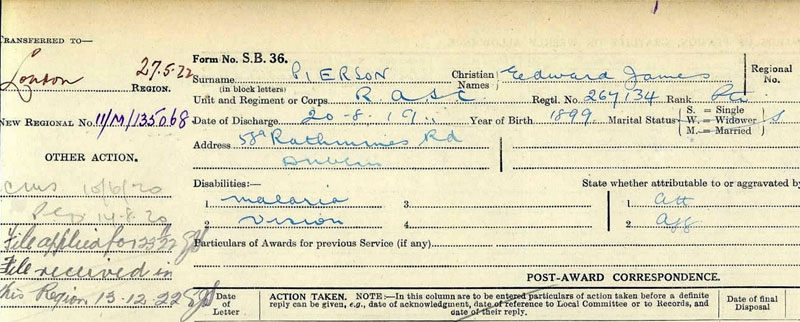 TRANSFERRED TO—
London
27.5.22 REGION.
NEW REGIONAL No. 11/M/135068
OTHER ACTION.
10/6/20
14.8.20
File applied for 22
File received in
this Region 13.12.22
Form No. S.B. 36.
Surname PIERSON Christian Names Edward James Regional No.
(in block letters)
Unit and Regiment or Corps R.ASC Regtl. No. 267134 Rank Pte
Date of Discharge 20-8-19 Year of Birth 1899. Marital Status S. = Single W. = Widower M. = Married S
Address 58a Rathmines Rd
Dublin
Disabilities:— State whether attributable to or aggravated by
1 malaria 3 1 att
2 Vision 4 2 agg
Particulars of Awards for previous Service (if any)
POST-AWARD CORRESPONDENCE.
Date of Letter
ACTION TAKEN. NOTE:—In this column are to be entered particulars of action taken before a definite
reply can be given, e.g., date of acknowledgment, date of reference to Local Committee or to Records, and
date of their reply.
Date of final Disposal